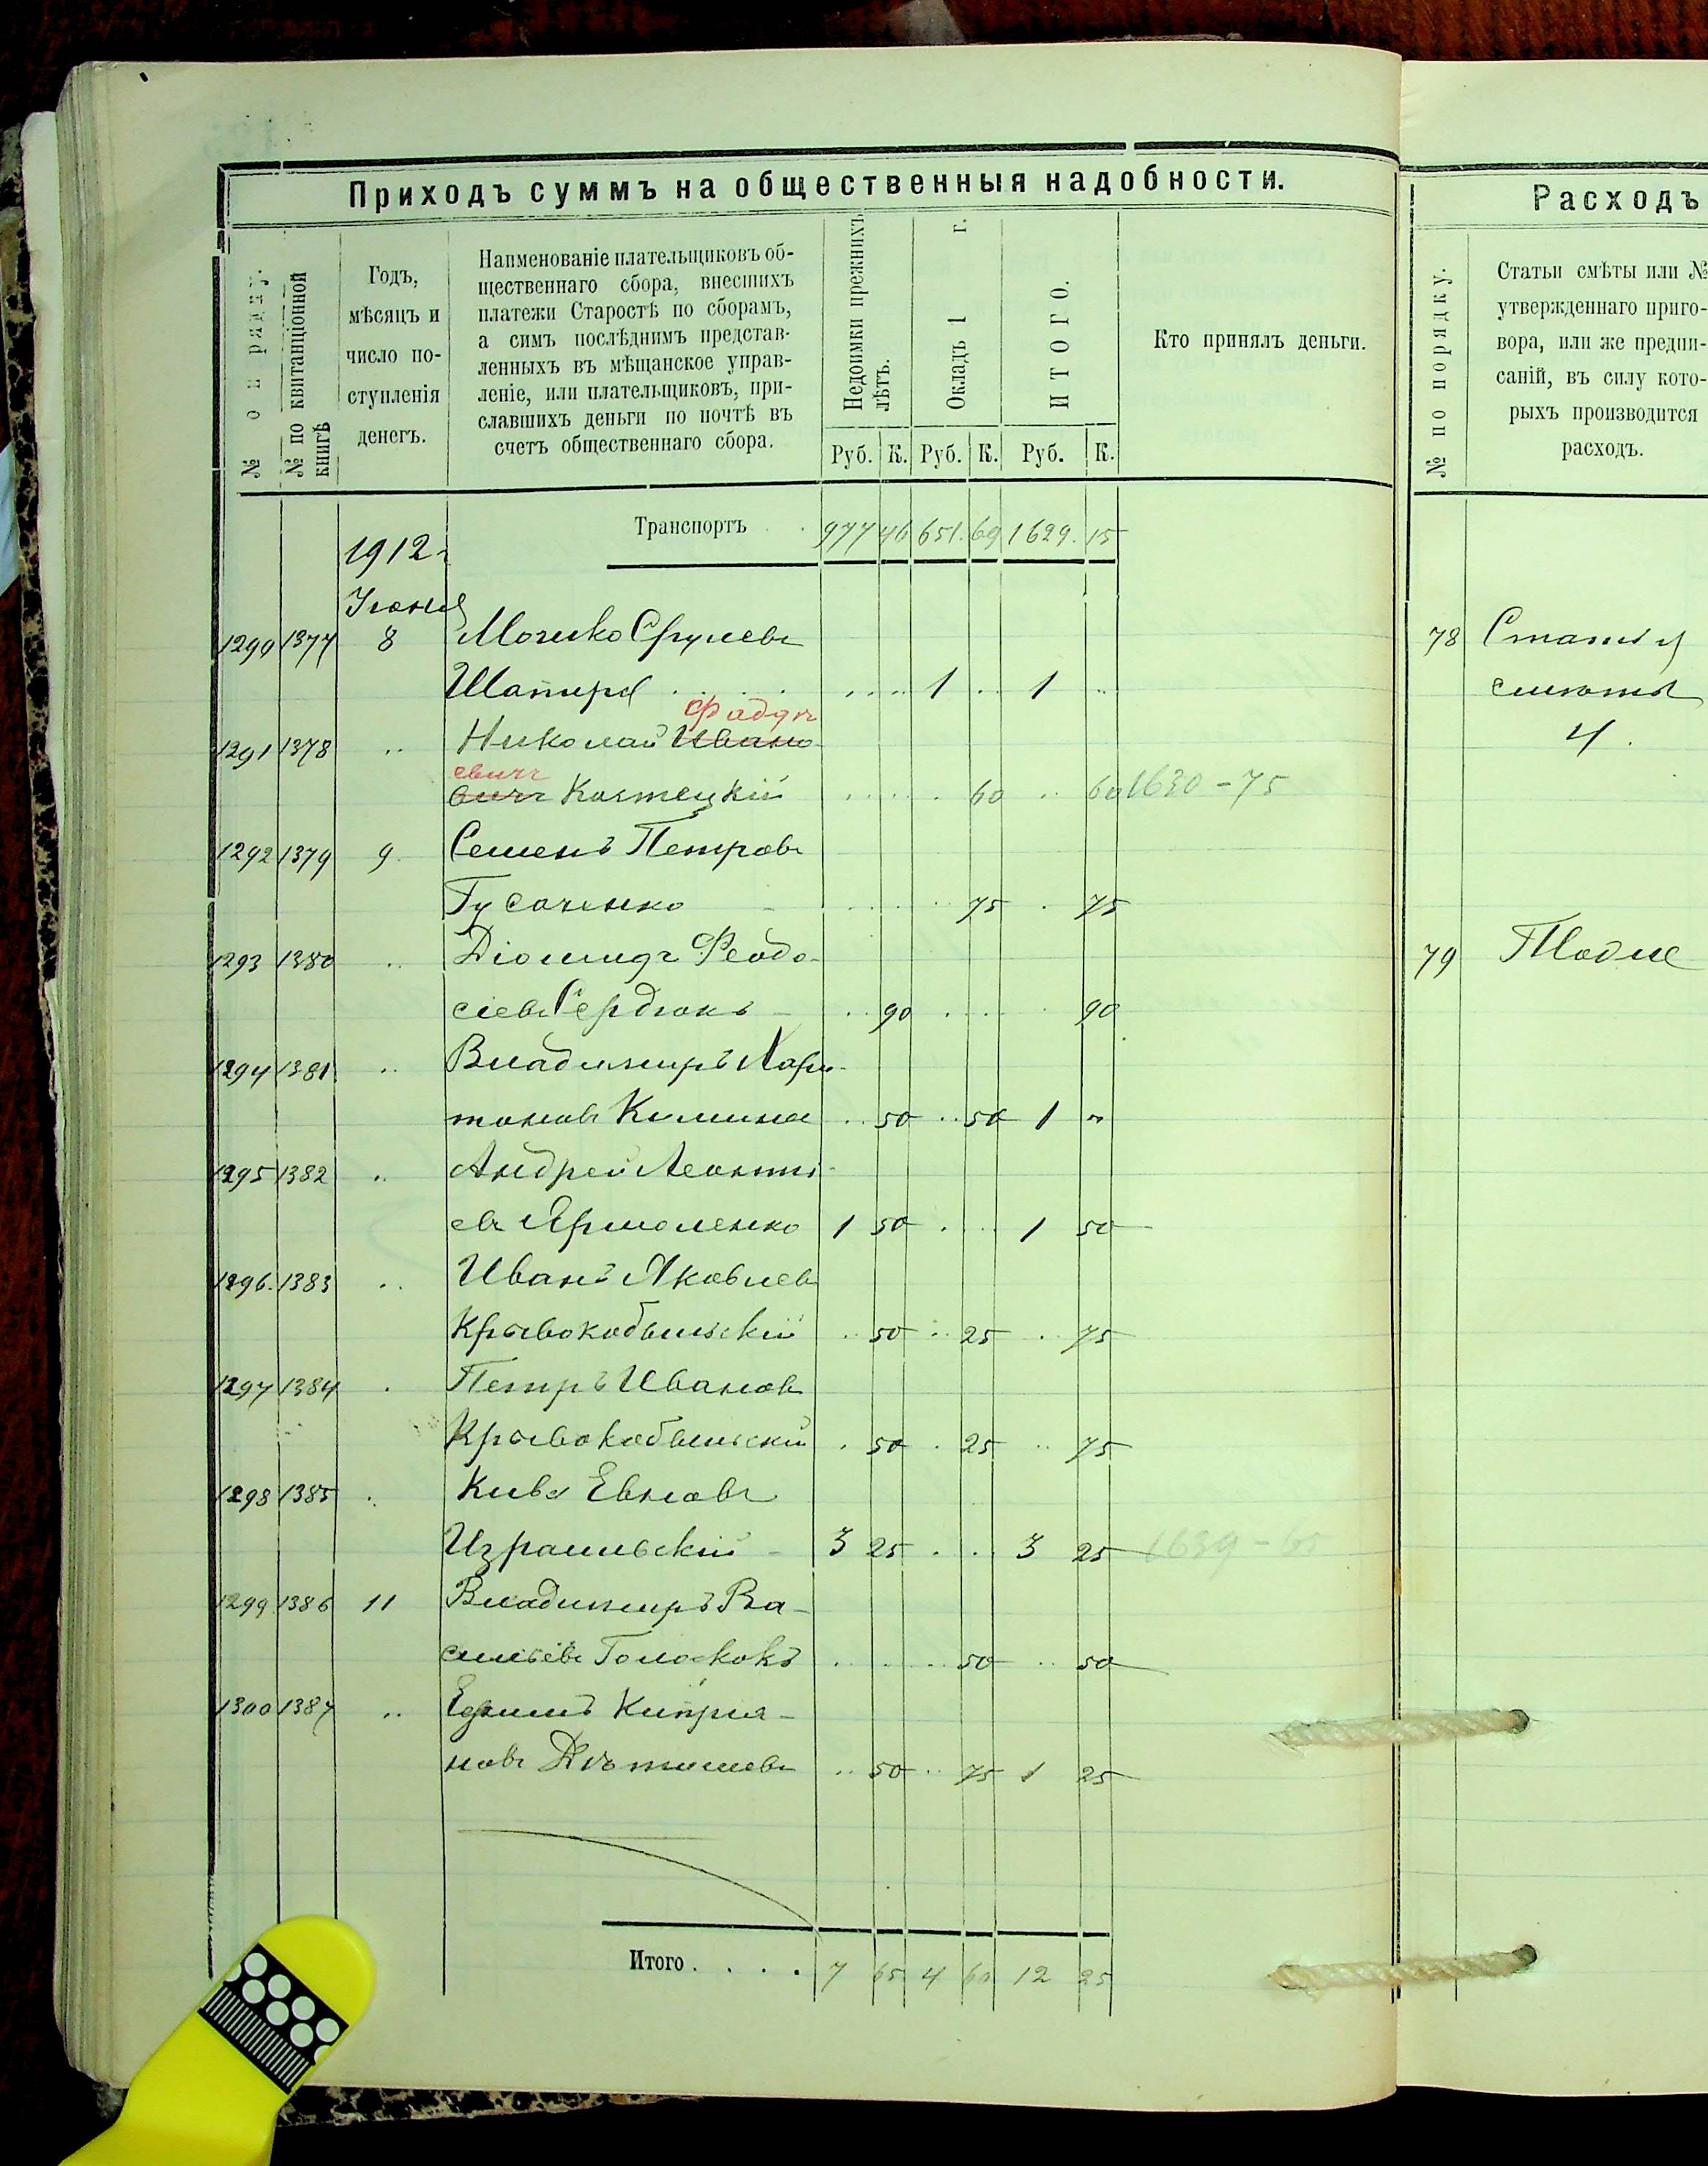 Приходъ суммъ на общественныя надобности.
№ по квитанціонной книгѣ
Годъ, мѣсяцъ и число поступленія денегъ.
Наименованіе плательщиковъ об-
щественнаго сбора, внесшихъ
платежи Старостѣ по сборамъ,
а симъ послѣднимъ представ-
ленныхъ въ мѣщанское управ-
леніе, или плательщиковъ, при-
славшихъ деньги по почтѣ въ
счетъ общественнаго сбора.
Недоимки прежнихъ лѣтъ.
Окладъ 1 г.
ИТОГО.
Кто принялъ деньги.
Руб. К. Руб. К. Руб. К.
Транспортъ 977 46 651. 69 1629. 15
1912 г
Іюня
1290 1377 8 Мошко Сруле
Шапиро 1 .. 1 ..
Фадѣ
1291 1378 .. Николай Ивано-
евичъ
вичъ Костецкій 60 .. 60 1630-75
1292 1379 9. Семенъ Петровъ
Гусаченко 75 . 75
1293 1380 .. Діомидъ Феодо-
сіевъ Сердюкъ .. 90 90
1294 1381 .. Владиміръ Хари-
тоновъ .. 50 .. 50 1 "
1295 1382 .. Андрей Леонті-
евъ Ярмоленко 1 50 1 50
1296. 1383 .. Иванъ Яковлевъ
Крывокобыльскій .. 50 .. 25 .. 75
1297 1384 . Петръ Ивановъ
Крывокобыльскій . 50 . 25 .. 75
1298 1385 .. Кива Евновъ
Израильскій - 3 25 . .. 3 25 1639-65
1299 1386 11 Владиміръ Ва-
сильевъ Голоскокъ 50 .. 50
1300 1387 .. Ефимъ Кипріа-
новъ .. 50 .. 75 1 25
Итого . . . . 7 65 4 60 12 25
Расходъ
№ по порядку.
Статьи смѣты или №
утвержденнаго приго-
вора, или же предпи-
саній, въ силу кото-
рыхъ производится
расходъ.
78 Статья
смѣты
4.
79 Тоже